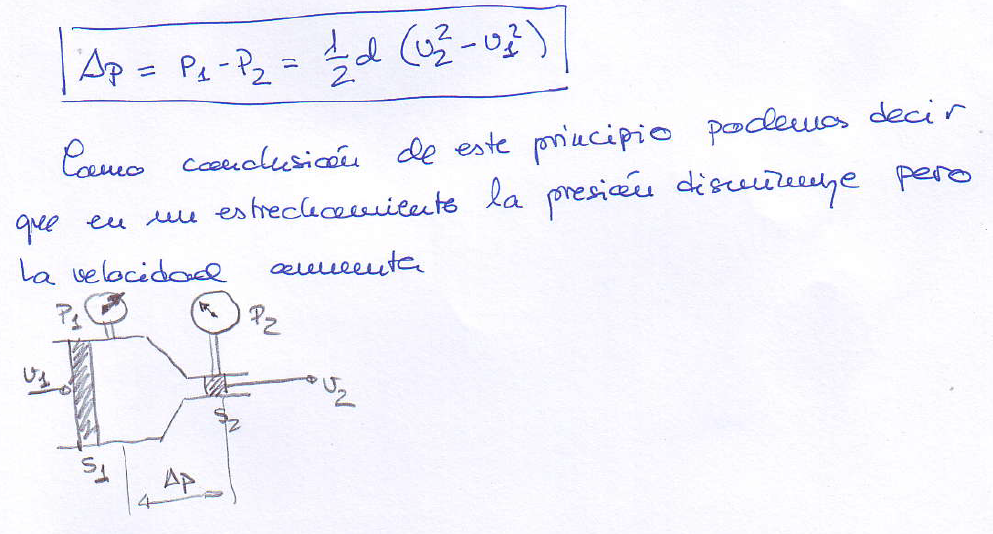 Δp = P₁ - P₂ = 1/2 d (v₂² - v₁²)
Como conclusión de este principio podemos decir
que en un estrechamiento la presión disminuye pero
la velocidad aumenta
P₁
P₂
v₁
v₂
S₂
S₁
Δp